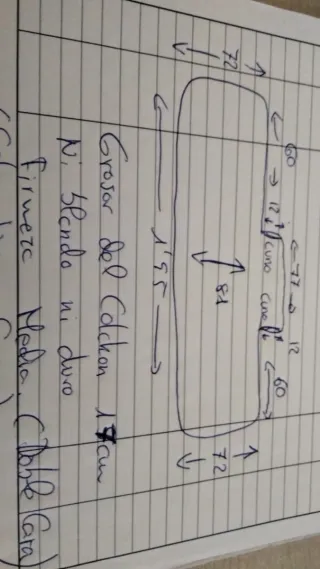 60 77 60
12 12
curva curva
72 81 72
1'95
Grosor del Colchon 17cm
Ni blando ni duro
Firmeza Media (Doble Cara)